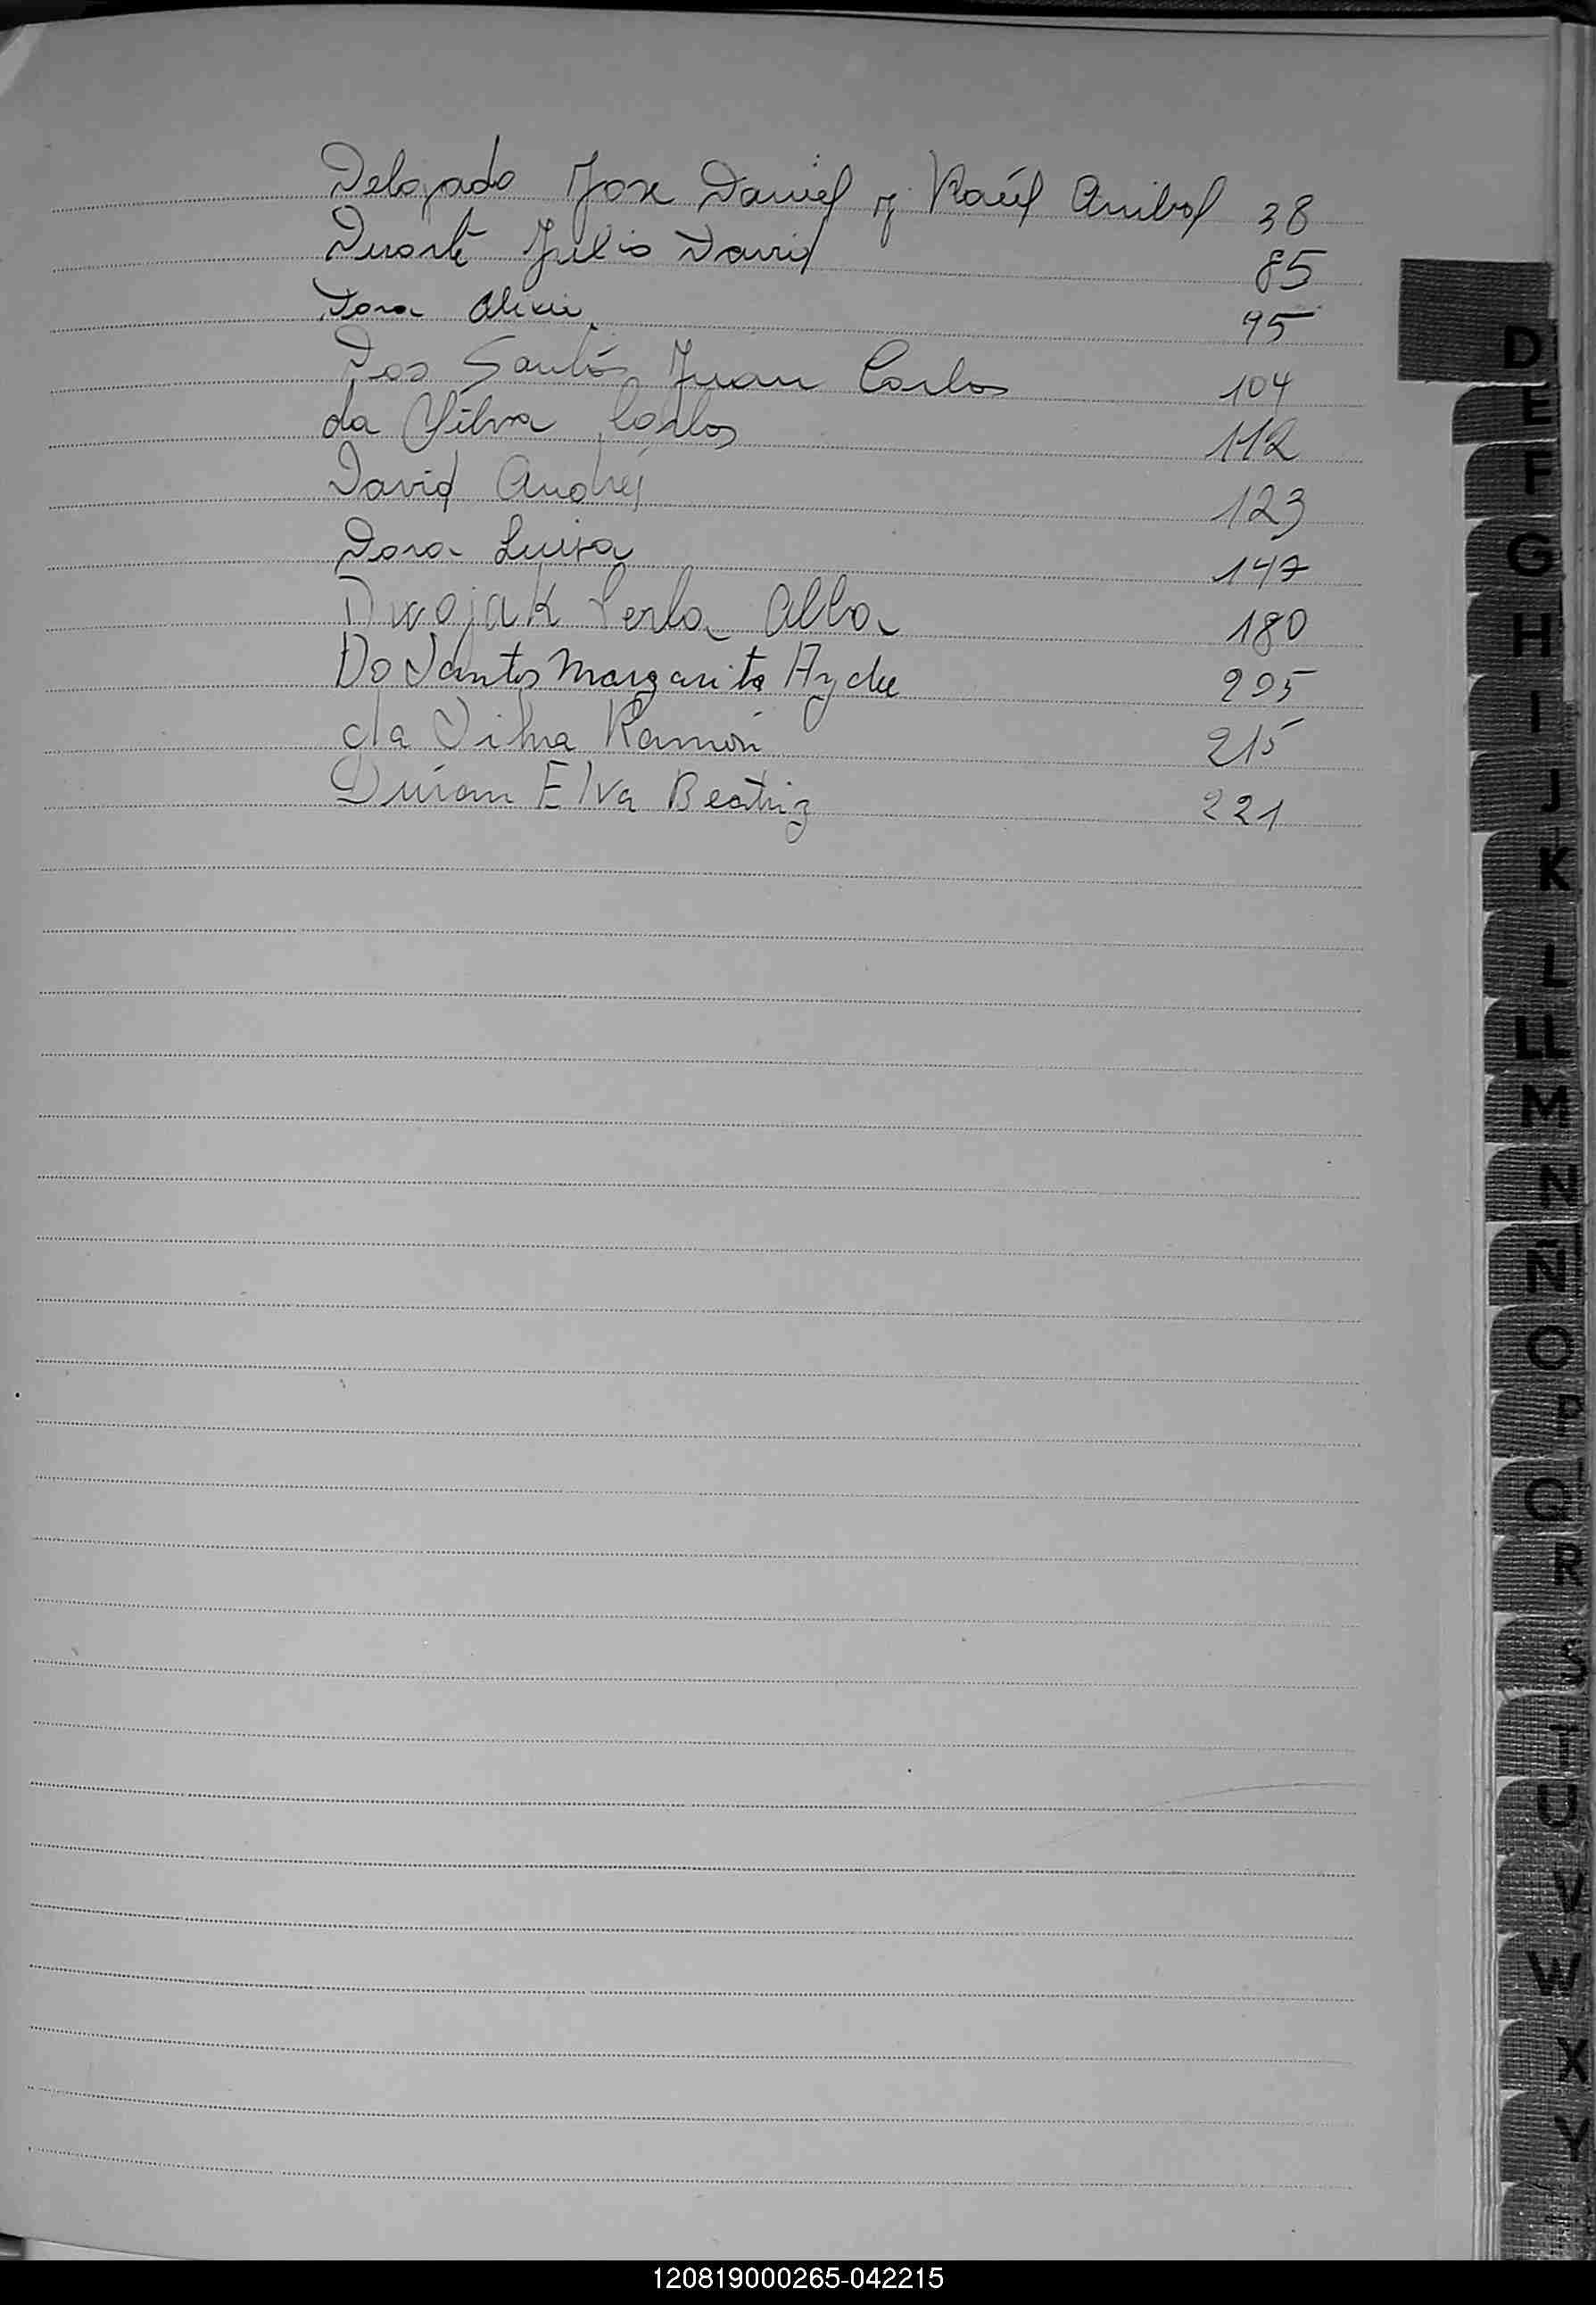 Delgado Jose Daniel y Raúl Anibal 38
Duarte Julio David 85
Dora Alicia 95
Dos Santos Juan Carlos 104
da Silva Carlos 112
David Andrés 123
Dora Luisa 147
Dwojak Perla Alba 180
Do Santos Margarita Aydee 205
da Silva Ramón 215
Durán Elva Beatriz 221
D
E
F
G
H
I
J
K
L
LL
M
N
Ñ
O
P
Q
R
S
T
U
V
W
X
Y
120819000265-042215